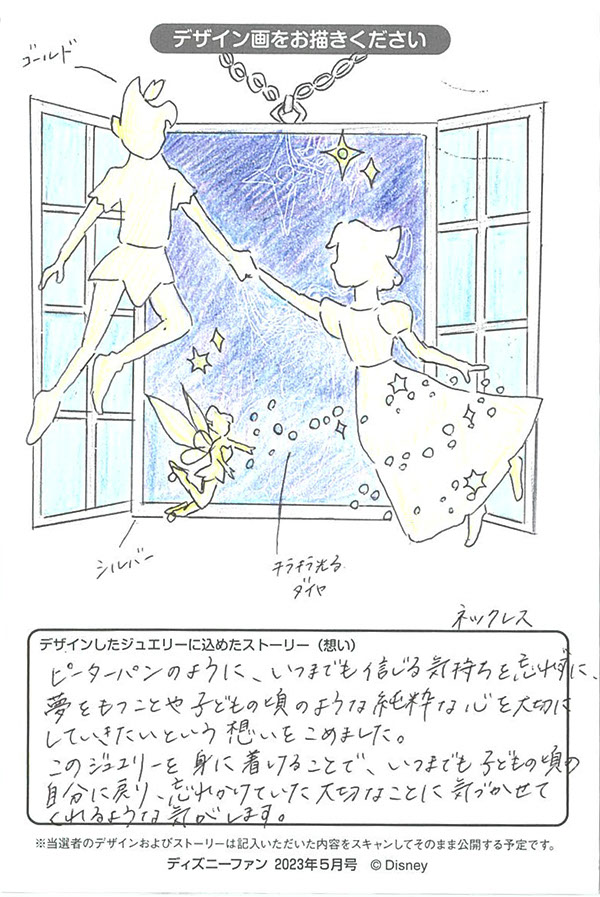 デザイン画をお描きください
ゴールド
シルバー
キラキラ光る
ダイヤ
ネックレス
デザインしたジュエリーに込めたストーリー（想い）
ピーターパンのように、いつまでも信じる気持ちを忘れずに、
夢をもつことや子どもの頃のような純粋な心を大切に
していきたいという想いをこめました。
このジュエリーを身に着けることで、いつまでも子どもの頃の
自分に戻り、忘れかけていた大切なことに気づかせて
くれるような気がします。
※当選者のデザインおよびストーリーは記入いただいた内容をスキャンしてそのまま公開する予定です。
ディズニーファン 2023年5月号 ©Disney